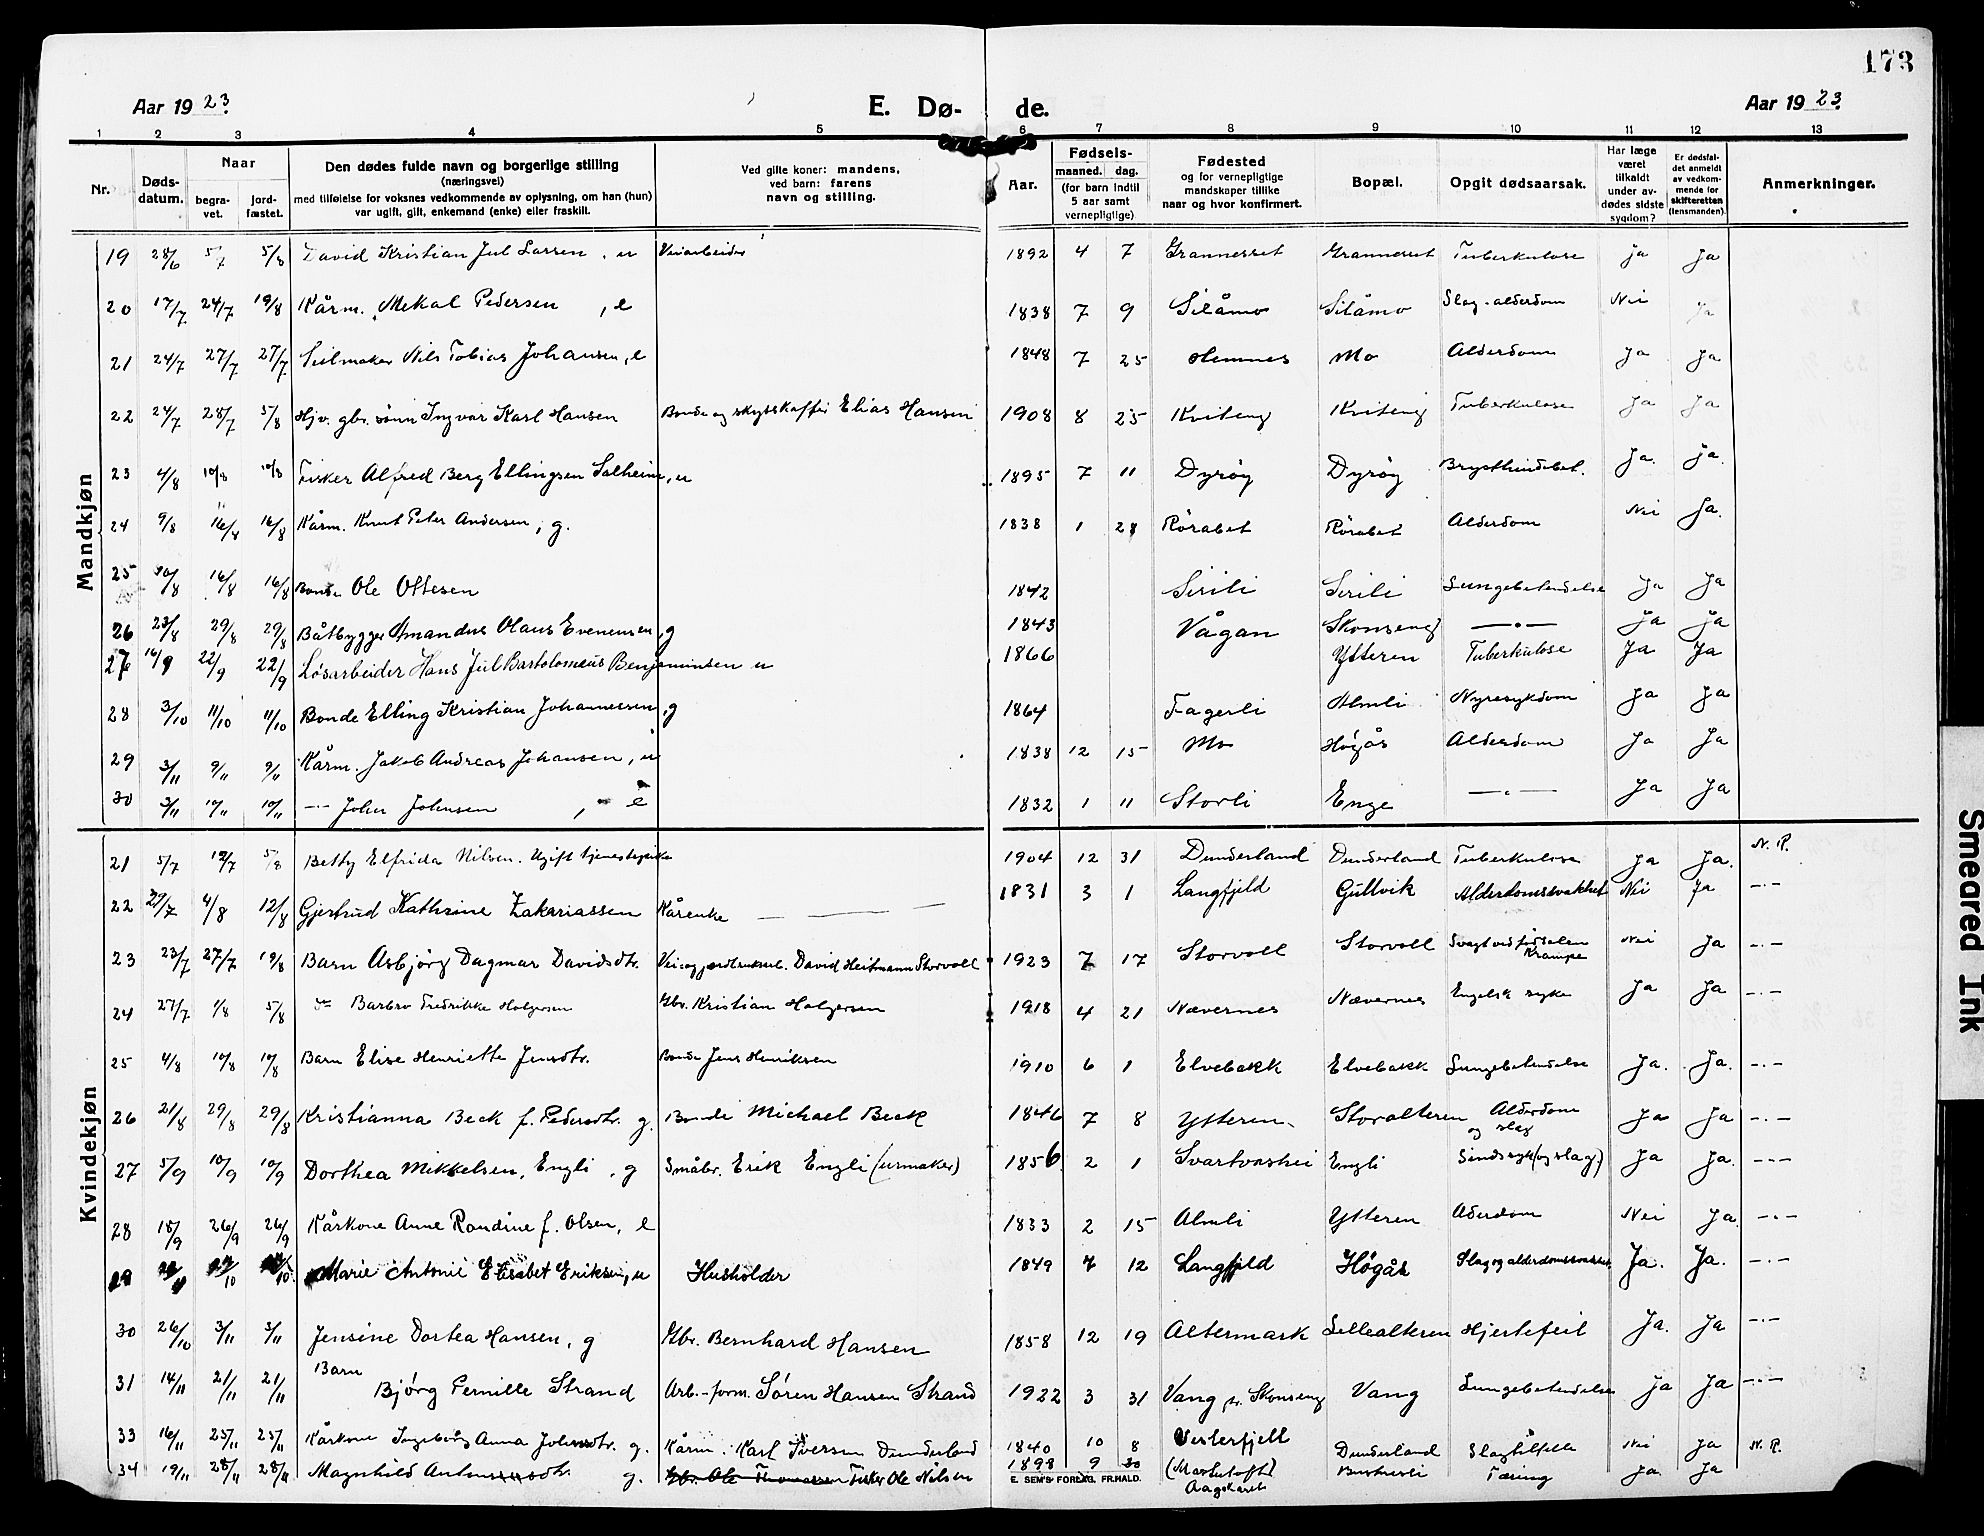 173
Aar 1923.
E. Dø-
de.
Aar 1923.
1 2 3 4 5 6 7 8 9 10 11 12 13
Nr.
Døds-
datum.
Naar
begra-
vet.
jord-
fæstet.
Den dødes fulde navn og borgerlige stilling
(næringsvei)
med tilføielse for voksnes vedkommende av oplysning, om han (hun)
var ugift, gift, enkemand (enke) eller fraskilt.
Ved gifte koner: mandens,
ved barn: farens
navn og stilling.
Aar.
Fødsels-
maaned. dag.
(for barn indtil
5 aar samt
vernepligtige)
Fødested
og for vernepligtige
mandskaper tillike
naar og hvor konfirmert.
Bopæl.
Opgit dødsaarsak.
Har læge
været
tilkaldt
under av-
dødes sidste
sygdom?
Er dødsfal-
det anmeldt
av vedkom-
mende for
skifteretten
(lensmanden).
Anmerkninger.
Mandkjøn
19 28/6 5/7 5/8 David Kristian Jul Larsen, u Veiarbeider 1892 4 7 Grannesset Grannesset Tuberkulose ja Ja
20 17/7 24/7 19/8 Kårm. Mekal Pedersen, e 1838 7 9 Silåmo Silåmo Slag-alderdom Nei Ja
21 24/7 27/7 27/7 Seilmaker Nils Tobias Johansen, e 1848 7 25 Hemnes Mo Alderdom Ja Ja
22 24/7 28/7 5/8 Hjv. gbr. sønn Ingvar Karl Hansen Bonde og skysskaffer Elias Hansen 1908 8 25 Kviteng Kviteng Tuberkulose Ja Ja
23 4/8 10/8 10/8 Fisker Alfred Berg Ellingsen Solheim, u 1895 7 11 Dyrøy Dyrøy Brysthindebet. Ja. Ja.
24 9/8 16/8 16/8 Kårm. Knut Peter Andersen, g. 1838 1 28 Rørabet Rørabet Alderdom Nei Ja.
25 /8 16/8 16/8 Bonde Ole Ottesen 1842 Sirili Sirili Lungebetendelse Ja Ja
26 23/8 29/8 29/8 Båtbygger Amandus Olaus Evenensen, g 1843 Vågan Skonseng —"— Ja Ja
27 16/9 22/9 22/9 Løsarbeider Hans Jul Bartolomeus Benjaminsen u 1866 Ytteren Tuberkulose Ja Ja
28 3/10 11/10 11/10 Bonde Elling Kristian Johannessen, g 1864 Fagerli Almli Nyresykdom Ja Ja
29 3/11 9/11 9/11 Kårm. Jakob Andreas Johansen, u 1838 12 15 Mo Høgås Alderdom Ja Ja
30 3/11 10/11 10/11 —"— John Johnsen, e 1832 1 11 Storli Enge —"— Ja Ja
Kvindekjøn
21 5/7 12/7 5/8 Betty Elfrida Nilsen. Ugift tjenestepike 1904 12 31 Dunderland Dunderland Tuberkulose Ja Ja. N. R.
22 29/7 4/8 12/8 Gjertrud Kathrine Zakariassen Kårenke — — — 1831 3 1 Langfjeld Gullvik Alderdomssvakhet Nei Ja —"—
23 23/7 27/7 19/8 Barn Asbjørg Dagmar Davidsdtr. Vei og jordbruksarb. David Heitmann Storvoll 1923 7 17 Storvoll Storvoll Svagt ved fødselen Krampe Nei Ja —"—
24 27/7 1/8 5/8 Barbro Fredrikke Holgersen Gbr. Kristian Holgersen 1918 4 21 Nævernes Nævernes Engelsk syke Ja Ja —"—
25 4/8 10/8 10/8 Barn Elise Henriette Jensdtr. Bonde Jens Henriksen 1910 6 1 Elvebakk Elvebakk Lungebetendelse Ja. Ja. —"—
26 21/8 29/8 29/8 Kristianna Beck f. Pedersdtr. g. Bonde Michael Beck 1846 7 8 Ytteren Storalteren Alderdom og slag Ja Ja —"—
27 5/9 10/9 10/9 Dorthea Mikkelsen, Engli, g Småbr. Erik Engli (urmaker) 1856 2 1 Svartvashei Engli Sindssyk (og slag) Ja Ja. —"—
28 18/9 26/9 26/9 Kårkone Anne Randine f. Olsen, e 1833 2 15 Almli Ytteren Alderdom Nei Ja —"—
29 /10 /10 Marie Antonie Elisabet Eriksen, u Husholder 1849 7 12 Langfjeld Høgås Slag og alderdomssvakhet Ja. Ja. —"—
30 26/10 3/11 3/11 Jensine Dortea Hansen, g Gbr. Bernhard Hansen 1858 12 19 Altermark Lillealteren Hjertefeil Ja. Ja —"—
31 14/11 21/11 21/11 Barn Bjørg Pernille Strand Arb.-form. Søren Hansen Strand 1922 3 31 Vang pr. Skonseng Vang Lungebetendelse Ja Ja —"—
33 16/11 25/11 25/11 Kårkone Ingeborg Anna Johnsdtr. g. Kårm. Karl Iversen Dunderland 1840 10 8 Vesterfjell Dunderland Slagtilfelle Nei Ja N. R.
34 19/11 28/11 28/11 Magnhild Antonsdtr. g. Gbr. Ole Thomassen Fisker Ole Nilsen 1898 9 30 Tæring Ja. Ja
E. SEM'S FORLAG, FR.HALD.
Smeared Ink